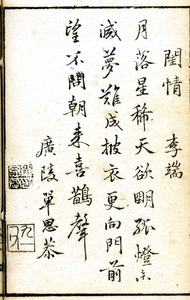 閨情　李端
月落星稀天欲明孤燈未
滅夢難成披衣更向門前
望不問朝来喜鵲聲
廣陵單思恭